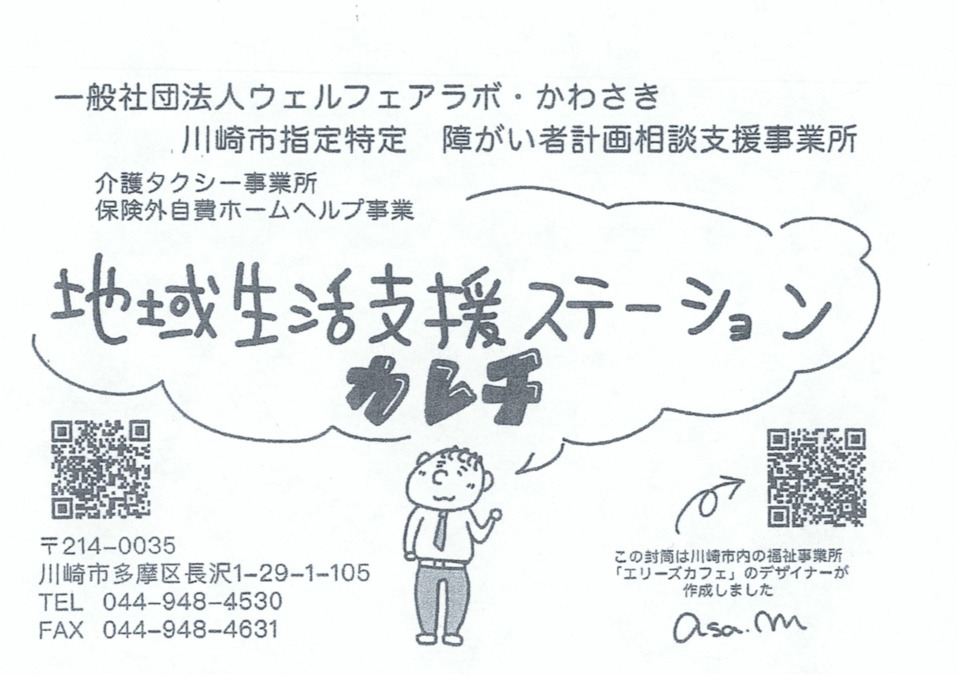 一般社団法人ウェルフェアラボ・かわさき
川崎市指定特定　障がい者計画相談支援事業所
介護タクシー事業所
保険外自費ホームヘルプ事業
地域生活支援ステーション
カレチ
〒214-0035
川崎市多摩区長沢1-29-1-105
TEL 044-948-4530
FAX 044-948-4631
この封筒は川崎市内の福祉事業所
「エリーズカフェ」のデザイナーが
作成しました
asa.m